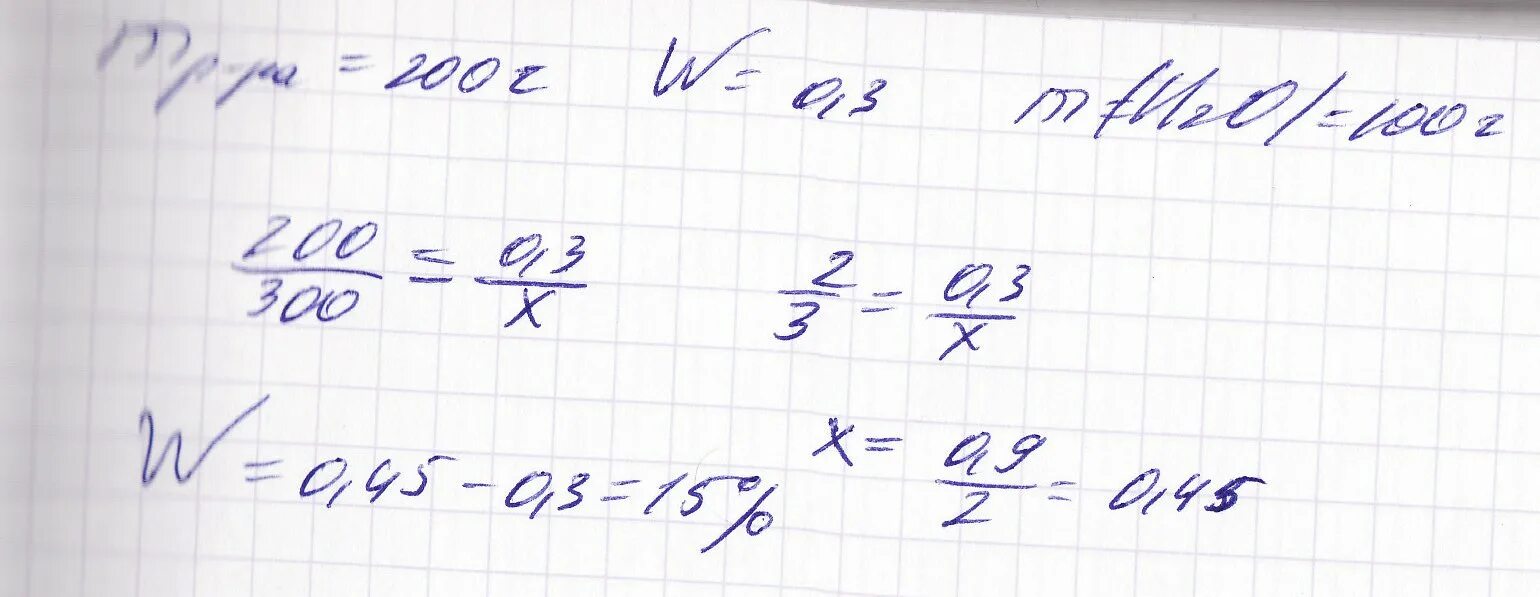 m р-ра = 200г W = 0,3 m(H2O) = 100г
200/300 = 0,3/x 2/3 = 0,3/x
W = 0,45 - 0,3 = 15% x = 0,9/2 = 0,45